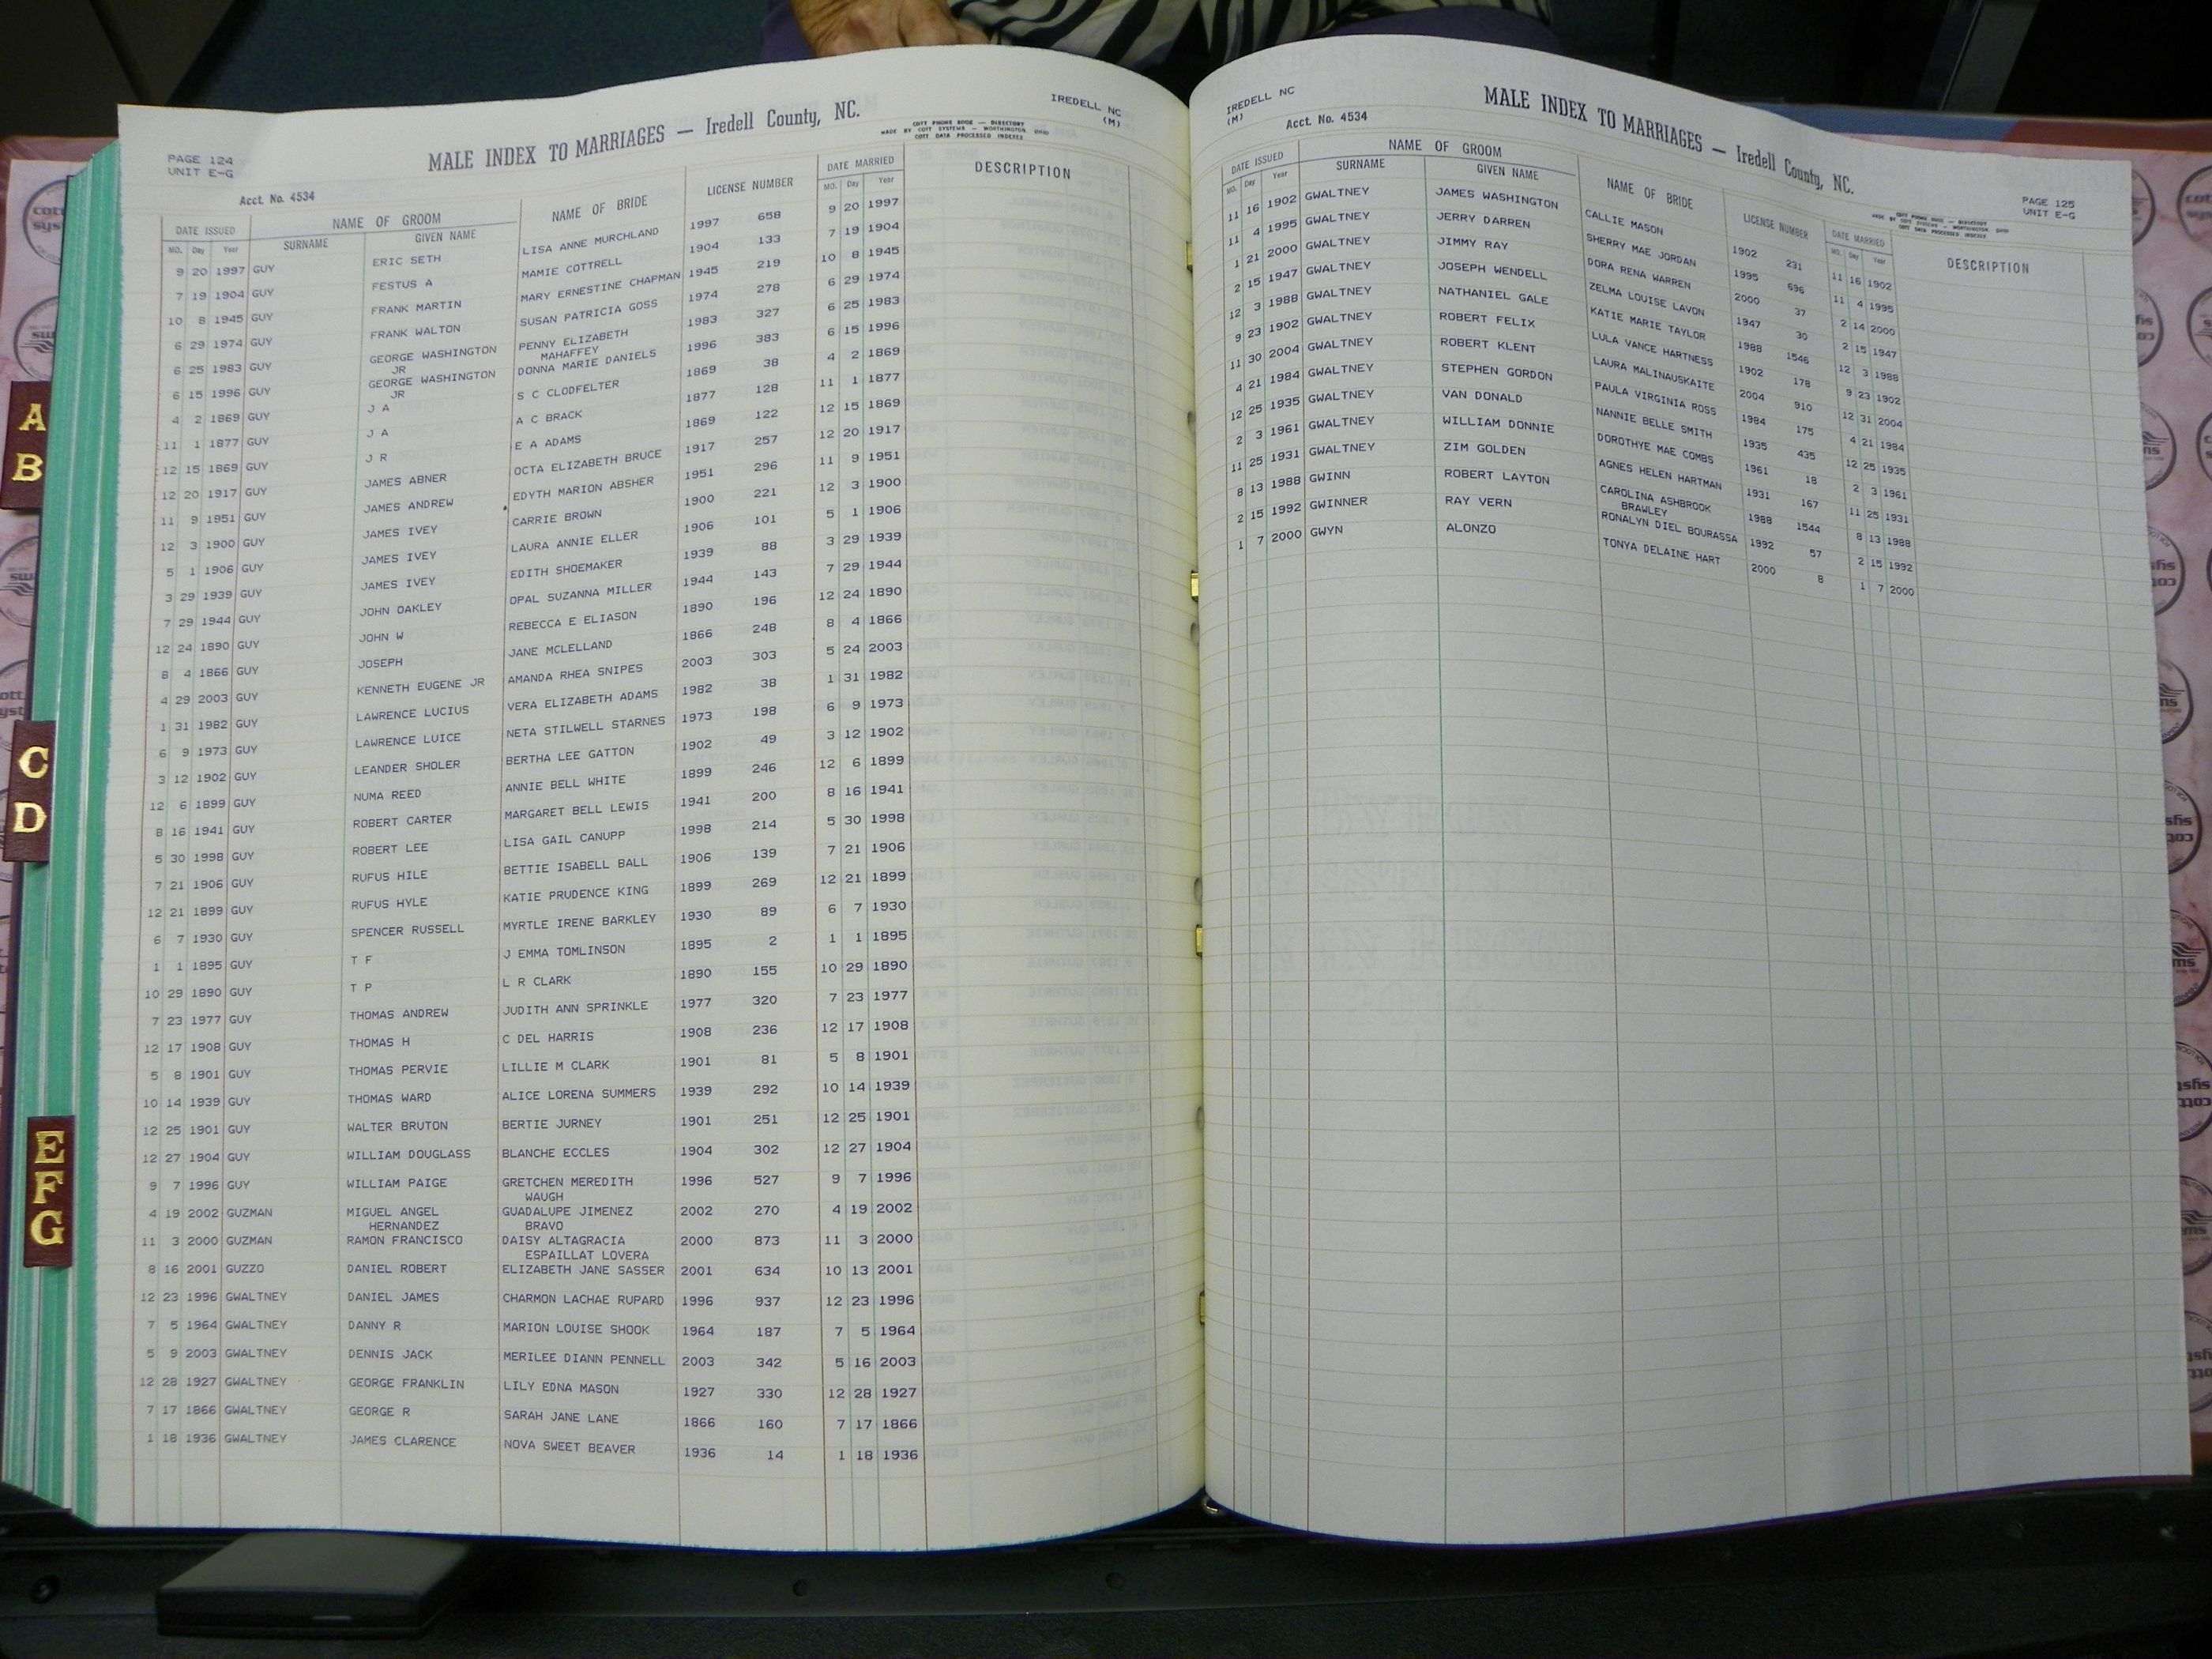 PAGE 124
UNIT E-G
MALE INDEX TO MARRIAGES — Iredell County, NC.
IREDELL NC
(M)
COTT PHONE BOOK — DIRECTORY
MADE BY COTT SYSTEMS — WORTHINGTON OHIO
COTT DATA PROCESSED INDEXES
Acct. No. 4534
DATE ISSUED NAME OF GROOM NAME OF BRIDE LICENSE NUMBER DATE MARRIED DESCRIPTION
MO. Day Year SURNAME GIVEN NAME MO. Day Year
9 20 1997 GUY ERIC SETH LISA ANNE MURCHLAND 1997 658 9 20 1997
7 19 1904 GUY FESTUS A MAMIE COTTRELL 1904 133 7 19 1904
10 8 1945 GUY FRANK MARTIN MARY ERNESTINE CHAPMAN 1945 219 10 8 1945
6 29 1974 GUY FRANK WALTON SUSAN PATRICIA GOSS 1974 278 6 29 1974
6 25 1983 GUY GEORGE WASHINGTON PENNY ELIZABETH 1983 327 6 25 1983
JR MAHAFFEY
6 15 1996 GUY GEORGE WASHINGTON DONNA MARIE DANIELS 1996 383 6 15 1996
JR
4 2 1869 GUY J A S C CLODFELTER 1869 38 4 2 1869
11 1 1877 GUY J A A C BRACK 1877 128 11 1 1877
12 15 1869 GUY J R E A ADAMS 1869 122 12 15 1869
12 20 1917 GUY JAMES ABNER OCTA ELIZABETH BRUCE 1917 257 12 20 1917
11 9 1951 GUY JAMES ANDREW EDYTH MARION ABSHER 1951 296 11 9 1951
12 3 1900 GUY JAMES IVEY CARRIE BROWN 1900 221 12 3 1900
5 1 1906 GUY JAMES IVEY LAURA ANNIE ELLER 1906 101 5 1 1906
3 29 1939 GUY JAMES IVEY EDITH SHOEMAKER 1939 88 3 29 1939
7 29 1944 GUY JOHN OAKLEY OPAL SUZANNA MILLER 1944 143 7 29 1944
12 24 1890 GUY JOHN W REBECCA E ELIASON 1890 196 12 24 1890
8 4 1866 GUY JOSEPH JANE MCLELLAND 1866 248 8 4 1866
4 29 2003 GUY KENNETH EUGENE JR AMANDA RHEA SNIPES 2003 303 5 24 2003
1 31 1982 GUY LAWRENCE LUCIUS VERA ELIZABETH ADAMS 1982 38 1 31 1982
6 9 1973 GUY LAWRENCE LUICE NETA STILWELL STARNES 1973 198 6 9 1973
3 12 1902 GUY LEANDER SHOLER BERTHA LEE GATTON 1902 49 3 12 1902
12 6 1899 GUY NUMA REED ANNIE BELL WHITE 1899 246 12 6 1899
8 16 1941 GUY ROBERT CARTER MARGARET BELL LEWIS 1941 200 8 16 1941
5 30 1998 GUY ROBERT LEE LISA GAIL CANUPP 1998 214 5 30 1998
7 21 1906 GUY RUFUS HILE BETTIE ISABELL BALL 1906 139 7 21 1906
12 21 1899 GUY RUFUS HYLE KATIE PRUDENCE KING 1899 269 12 21 1899
6 7 1930 GUY SPENCER RUSSELL MYRTLE IRENE BARKLEY 1930 89 6 7 1930
1 1 1895 GUY T F J EMMA TOMLINSON 1895 2 1 1 1895
10 29 1890 GUY T P L R CLARK 1890 155 10 29 1890
7 23 1977 GUY THOMAS ANDREW JUDITH ANN SPRINKLE 1977 320 7 23 1977
12 17 1908 GUY THOMAS H C DEL HARRIS 1908 236 12 17 1908
5 8 1901 GUY THOMAS PERVIE LILLIE M CLARK 1901 81 5 8 1901
10 14 1939 GUY THOMAS WARD ALICE LORENA SUMMERS 1939 292 10 14 1939
12 25 1901 GUY WALTER BRUTON BERTIE JURNEY 1901 251 12 25 1901
12 27 1904 GUY WILLIAM DOUGLASS BLANCHE ECCLES 1904 302 12 27 1904
9 7 1996 GUY WILLIAM PAIGE GRETCHEN MEREDITH 1996 527 9 7 1996
WAUGH
4 19 2002 GUZMAN MIGUEL ANGEL GUADALUPE JIMENEZ 2002 270 4 19 2002
HERNANDEZ BRAVO
11 3 2000 GUZMAN RAMON FRANCISCO DAISY ALTAGRACIA 2000 873 11 3 2000
ESPAILLAT LOVERA
8 16 2001 GUZZO DANIEL ROBERT ELIZABETH JANE SASSER 2001 634 10 13 2001
12 23 1996 GWALTNEY DANIEL JAMES CHARMON LACHAE RUPARD 1996 937 12 23 1996
7 5 1964 GWALTNEY DANNY R MARION LOUISE SHOOK 1964 187 7 5 1964
5 9 2003 GWALTNEY DENNIS JACK MERILEE DIANN PENNELL 2003 342 5 16 2003
12 28 1927 GWALTNEY GEORGE FRANKLIN LILY EDNA MASON 1927 330 12 28 1927
7 17 1866 GWALTNEY GEORGE R SARAH JANE LANE 1866 160 7 17 1866
1 18 1936 GWALTNEY JAMES CLARENCE NOVA SWEET BEAVER 1936 14 1 18 1936
A
B
C
D
E
F
G
IREDELL NC
(M)
MALE INDEX TO MARRIAGES — Iredell County, NC.
PAGE 125
UNIT E-G
Acct. No. 4534
COTT PHONE BOOK — DIRECTORY
MADE BY COTT SYSTEMS — WORTHINGTON OHIO
COTT DATA PROCESSED INDEXES
DATE ISSUED NAME OF GROOM NAME OF BRIDE LICENSE NUMBER DATE MARRIED DESCRIPTION
MO. Day Year SURNAME GIVEN NAME MO. Day Year
11 16 1902 GWALTNEY JAMES WASHINGTON CALLIE MASON 1902 231 11 16 1902
11 4 1995 GWALTNEY JERRY DARREN SHERRY MAE JORDAN 1995 696 11 4 1995
1 21 2000 GWALTNEY JIMMY RAY DORA RENA WARREN 2000 37 2 14 2000
2 15 1947 GWALTNEY JOSEPH WENDELL ZELMA LOUISE LAVON 1947 30 2 15 1947
12 3 1988 GWALTNEY NATHANIEL GALE KATIE MARIE TAYLOR 1988 1546 12 3 1988
9 23 1902 GWALTNEY ROBERT FELIX LULA VANCE HARTNESS 1902 178 9 23 1902
11 30 2004 GWALTNEY ROBERT KLENT LAURA MALINAUSKAITE 2004 910 12 31 2004
4 21 1984 GWALTNEY STEPHEN GORDON PAULA VIRGINIA ROSS 1984 175 4 21 1984
12 25 1935 GWALTNEY VAN DONALD NANNIE BELLE SMITH 1935 435 12 25 1935
2 3 1961 GWALTNEY WILLIAM DONNIE DOROTHYE MAE COMBS 1961 18 2 3 1961
11 25 1931 GWALTNEY ZIM GOLDEN AGNES HELEN HARTMAN 1931 167 11 25 1931
8 13 1988 GWINN ROBERT LAYTON CAROLINA ASHBROOK 1988 1544 8 13 1988
BRAWLEY
2 15 1992 GWINNER RAY VERN RONALYN DIEL BOURASSA 1992 57 2 15 1992
1 7 2000 GWYN ALONZO TONYA DELAINE HART 2000 8 1 7 2000